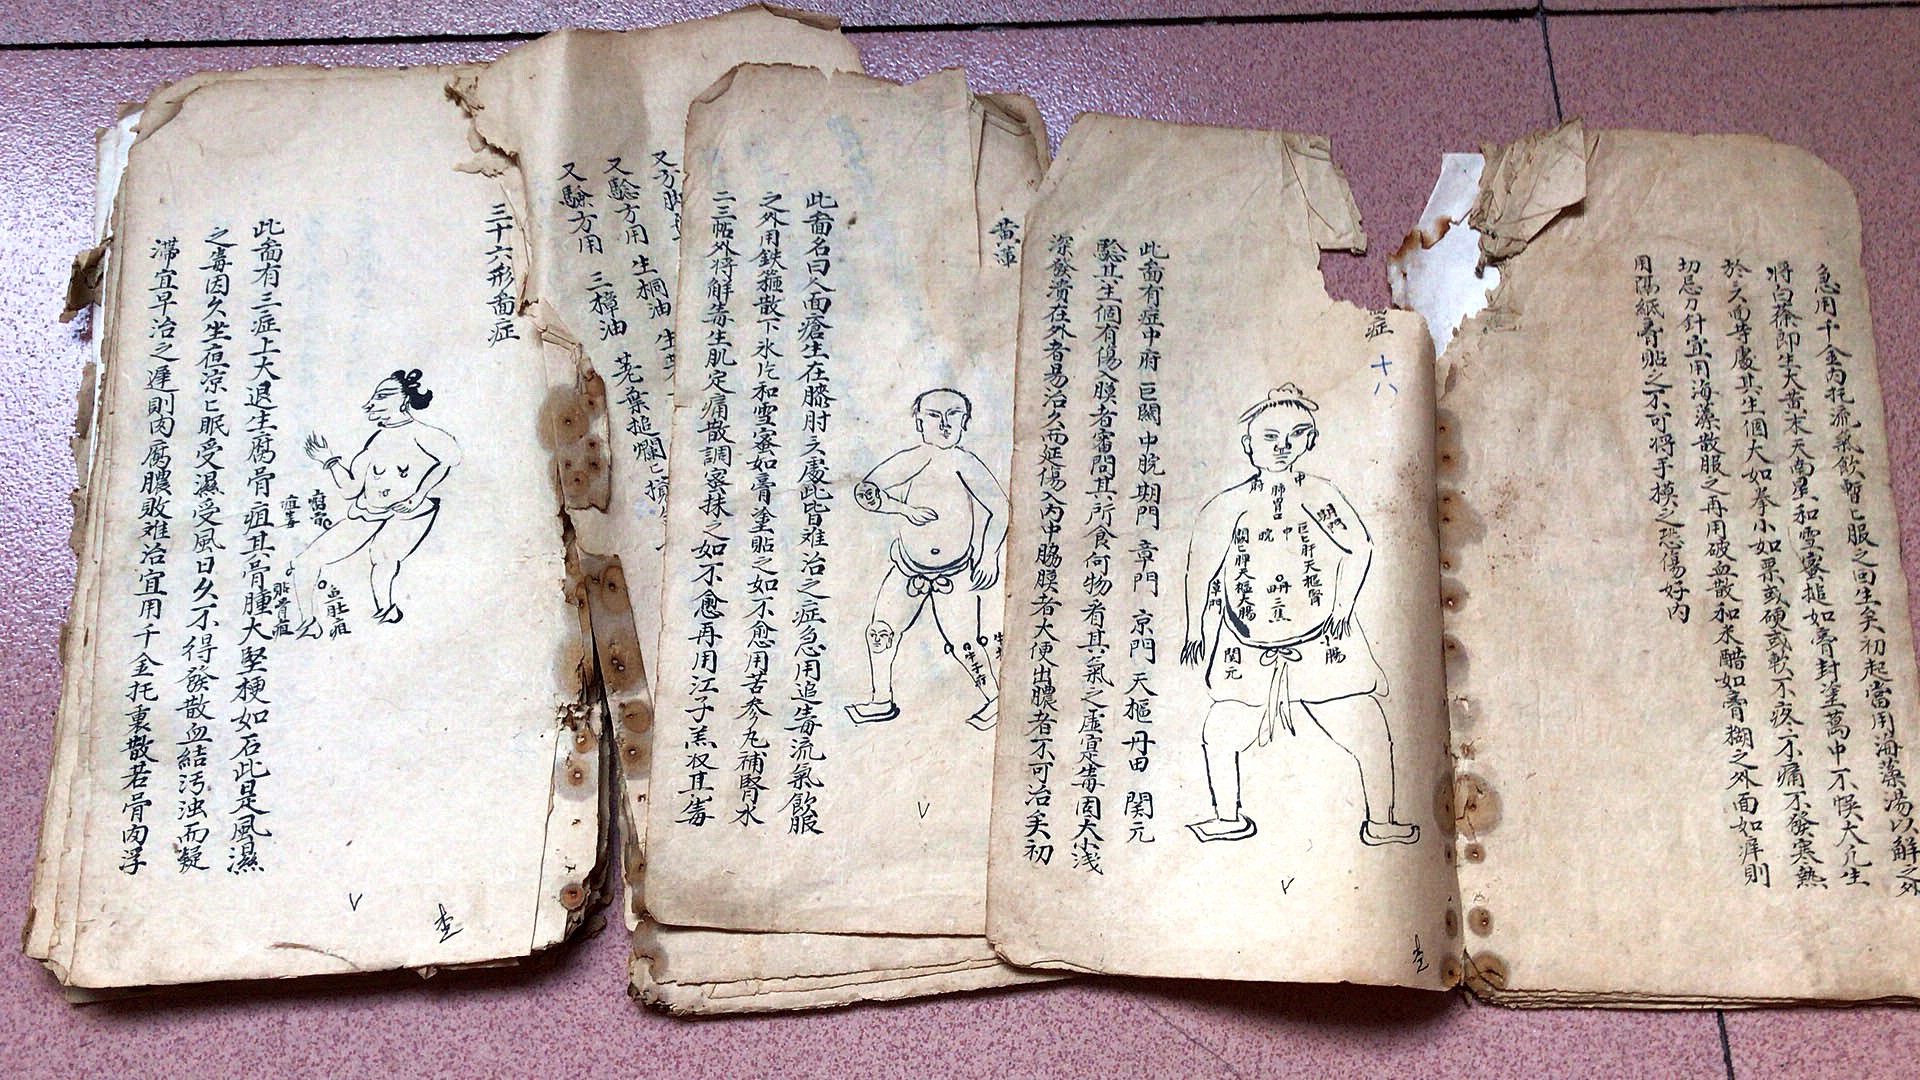 急用千金內托流氣飲暫匕服之回生矣初起當用海藻湯以解之外
將白蔹即生大黃末天南星和雪蜜搥如膏封塗萬中不悞大凢生
於久面等處其生個大如拳小如栗或硬或軟不疼不痛不發寒熱
切忌刀針宜用海藻散服之再用破血散和米醋如膏糊之外面如痒則
用隔紙膏貼之不可將手摸之恐傷好內
症 十八
此畨有症中府 巨闕 中脘 期門 章門 京門 天樞 丹田 関元
驗其生個有傷入膜者審問其所食何物看其氣之虛寔毒因大小浅
深發潰在外者易治久而延傷入內中臈膜者大便出膿者不可治矣初
中
府
肺胃口
期門
巨匕肝天樞腎
中
脘
闕匕脾天樞大腸
章門
丹
田
三焦
小腸
関元
黄蓮
此畨名曰人面瘡生在膝肘之處此皆难治之症急用追毒流氣飲服
之外用鉄箍散下氷片和雪蜜如膏塗貼之如不愈用苦參丸補腎水
二三帖外将解毒生肌定痛散調蜜抹之如不愈再用江子羔收其毒
又驗方用 生桐油
又驗方用 三樟油 芫葉搥爛匕
三十六形畨症
此畨有三症上大退生腐骨疽其骨腫大堅梗如石此是風濕
之毒因久坐夜凉匕眠受濕受風日久不得發散血結汚浊而凝
滯宜早治之遲則肉腐膿敗难治宜用千金托裏散若骨肉浮
腐骨
疽毒
血肚疽
貼骨疽